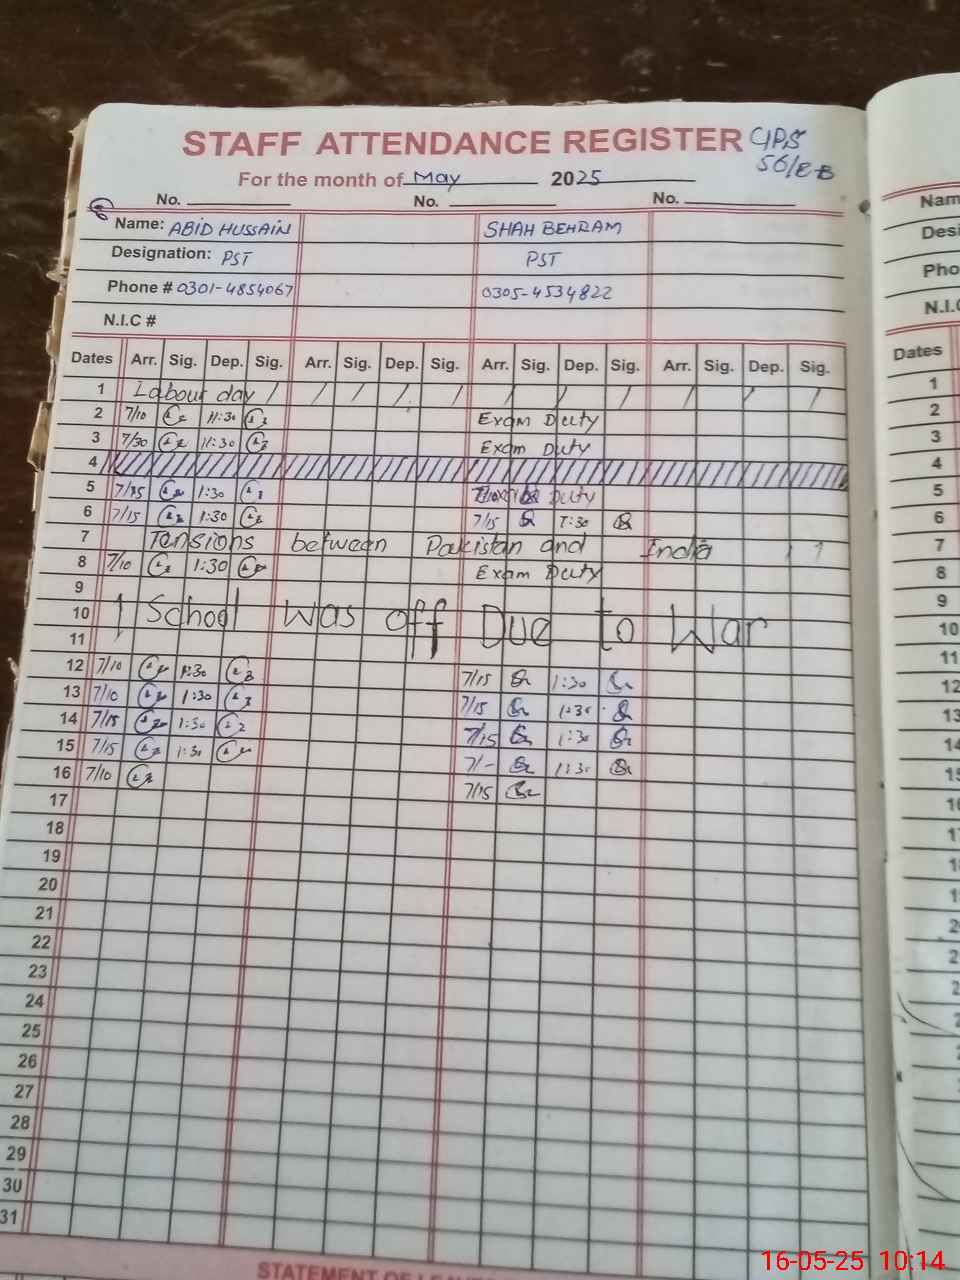 STAFF ATTENDANCE REGISTER GPS
56/EB
For the month of May 2025
No. No. No.
Name: ABID HUSSAIN SHAH BEHRAM
Designation: PST PST
Phone # 0301-4854067 0305-4534822
N.I.C #
Dates Arr. Sig. Dep. Sig. Arr. Sig. Dep. Sig. Arr. Sig. Dep. Sig. Arr. Sig. Dep. Sig.
1 Labour day
2 7/10 11:30 Exam Duty
3 7/30 11:30 Exam Duty
4
5 7/15 1:30 Duty
6 7/15 1:30 7/15 1:30
7 Tensions between Pakistan and India
8 7/10 1:30 Exam Duty
9
10 School was off Due to War
11
12 7/10 1:30 7/15 1:30
13 7/10 1:30 7/15 1:30
14 7/15 1:30 7/15 1:30
15 7/15 1:30 7/- 1:30
16 7/10 7/15
17
18
19
20
21
22
23
24
25
26
27
28
29
30
31
STATEMENT OF
Nam
Desi
Pho
N.I.C
Dates
1
2
3
4
5
6
7
8
9
10
11
12
13
14
15
16-05-25 10:14